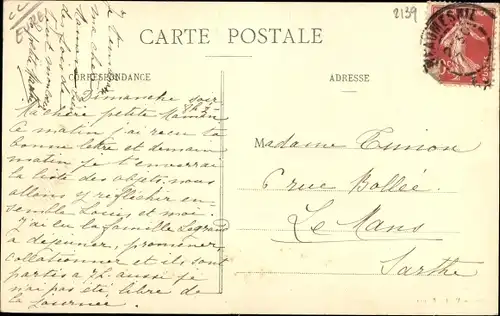 2139
CARTE POSTALE
CORRESPONDANCE
ADRESSE
Dimanche soir
Ma chère petite Maman
Ce matin j'ai reçu ta
bonne lettre et demain
matin je t'enverrai
la liste des objets, nous
allons y réfléchir en-
semble Louis et moi.
J'ai eu la famille Legrand
à déjeuner, promener,
collationner et ils sont
partis à 7h. aussi je
n'ai pas été libre de
la journée.
Je
ma chère
Maman
petite
Madame
6 rue Bollée
Le Mans
Sarthe